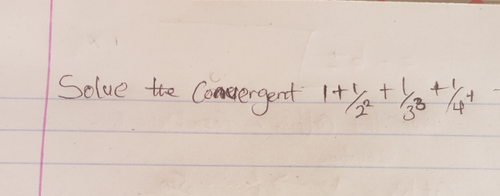 Solve the Convergent 1+1/2² + 1/3³ + 1/4⁴ -